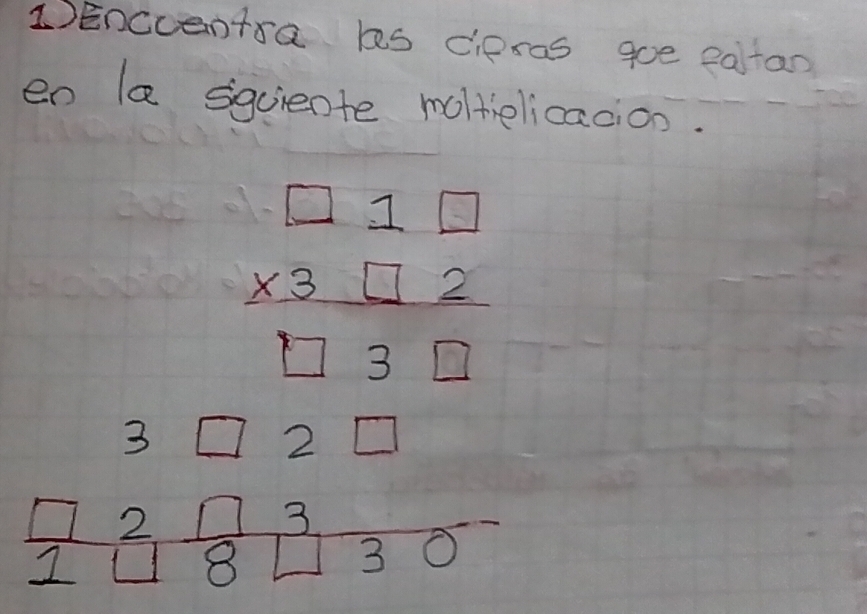 1) Encuentra las cifras que faltan
en la siguiente moltiplicacion.
□ 1 □
x 3 □ 2
□ 3 □
3 □ 2 □
□ 2 □ 3
1 □ 8 □ 3 0